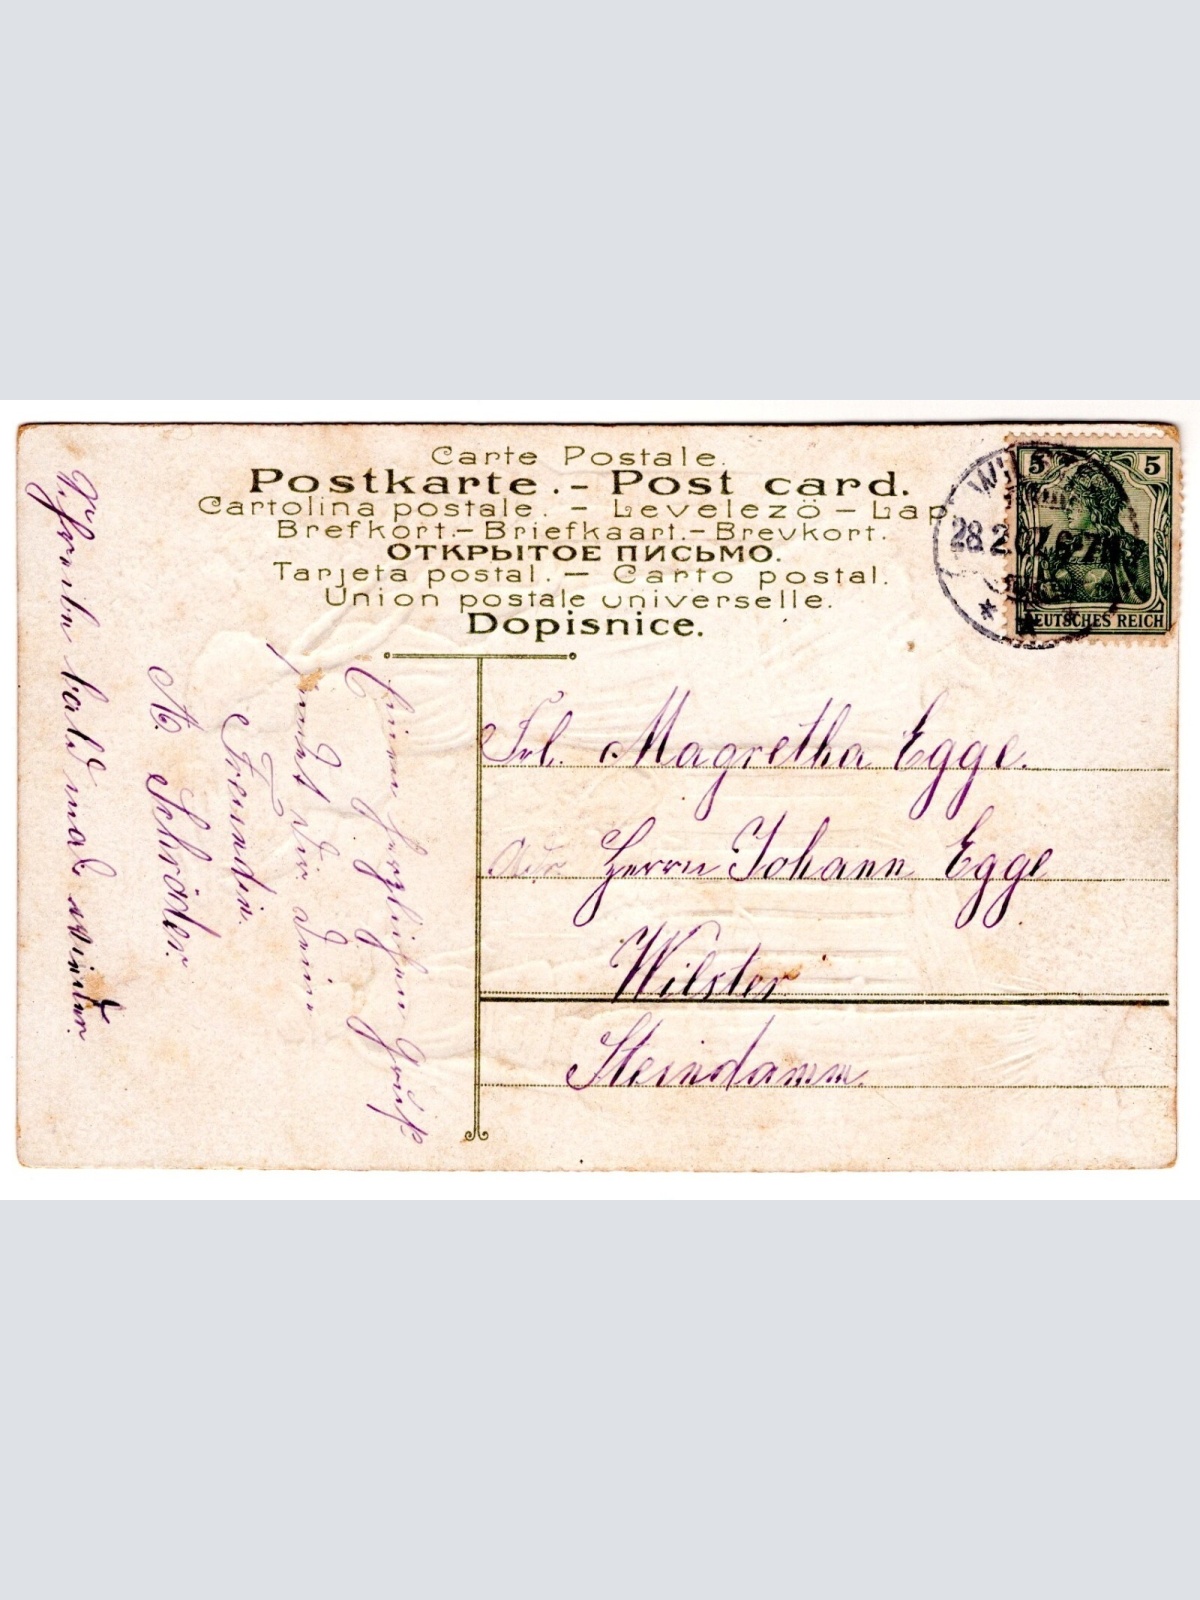 Carte Postale.
Postkarte.- Post card.
Cartolina postale. - Levelezö-Lap
Brefkort.-Briefkaart.-Brevkort.
ОТКРЫТОЕ ПИСЬМО.
Tarjeta postal. - Carto postal.
Union postale universelle.
Dopisnice.
5 5
DEUTSCHES REICH
28.2.
Frl. Magretha Egge.
Herrn Johann Egge
Wilster
Steindamm.
Einen herzlichen Gruß
sendet dir deine
Freundin.
A. Schröder.
Schreibe bald mal wieder.